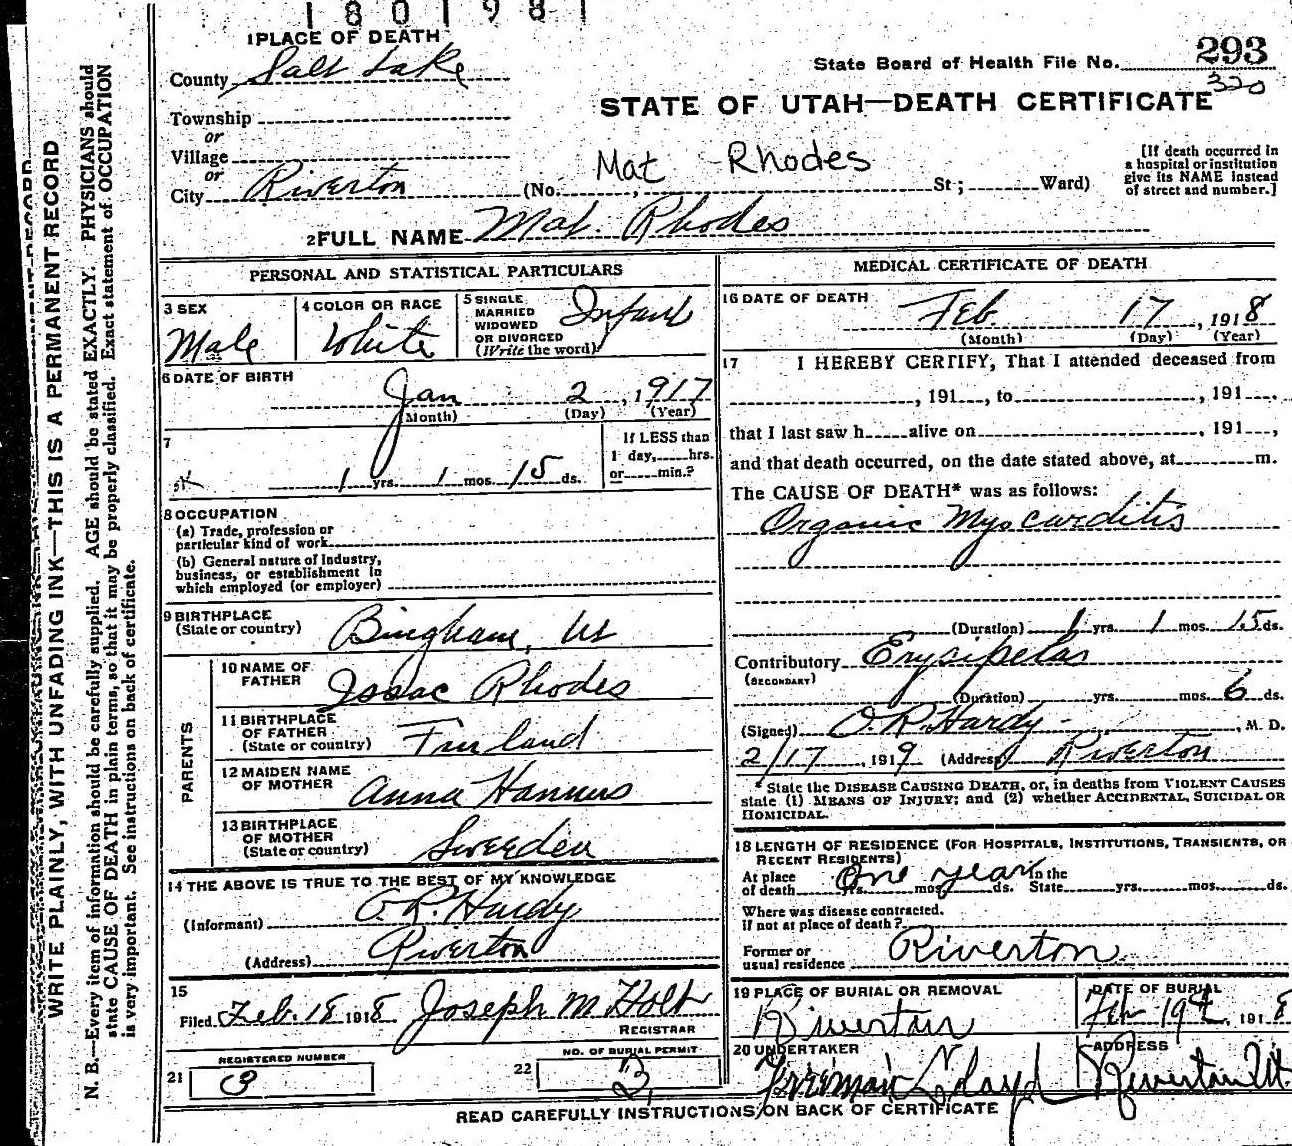 1801981
1 PLACE OF DEATH
County Salt Lake
State Board of Health File No. 293
320
STATE OF UTAH—DEATH CERTIFICATE
Township
or
Village
or
City Riverton (No. Mat Rhodes St; Ward)
[If death occurred in a hospital or institution give its NAME instead of street and number.]
2 FULL NAME Mat. Rhodes
PERSONAL AND STATISTICAL PARTICULARS
3 SEX Male
4 COLOR OR RACE White
5 SINGLE MARRIED WIDOWED OR DIVORCED (Write the word) Infant
6 DATE OF BIRTH Jan 2, 1917
(Month) (Day) (Year)
7
1 yrs. 1 mos. 15 ds.
If LESS than 1 day, hrs. or min.?
8 OCCUPATION
(a) Trade, profession or particular kind of work
(b) General nature of industry, business, or establishment in which employed (or employer)
9 BIRTHPLACE (State or country) Bingham, Ut
PARENTS
10 NAME OF FATHER Issac Rhodes
11 BIRTHPLACE OF FATHER (State or country) Finland
12 MAIDEN NAME OF MOTHER Anna Hannus
13 BIRTHPLACE OF MOTHER (State or country) Sweeden
14 THE ABOVE IS TRUE TO THE BEST OF MY KNOWLEDGE
(Informant) O. R. Hardy
(Address) Riverton
15
Filed Feb. 18 1918 Joseph M Holt
REGISTRAR
21 REGISTERED NUMBER 3
22 NO. OF BURIAL PERMIT 3
MEDICAL CERTIFICATE OF DEATH
16 DATE OF DEATH Feb. 17, 1918
(Month) (Day) (Year)
17 I HEREBY CERTIFY, That I attended deceased from
, 191 , to , 191 ,
that I last saw h alive on , 191 ,
and that death occurred, on the date stated above, at m.
The CAUSE OF DEATH* was as follows:
Organic Myocarditis
(Duration) 1 yrs. 1 mos. 15 ds.
Contributory Erysipelas
(SECONDARY)
(Duration) yrs. mos. 6 ds.
(Signed) O. R. Hardy, M. D.
2/17, 1919 (Address) Riverton
* State the DISEASE CAUSING DEATH, or, in deaths from VIOLENT CAUSES
state (1) MEANS OF INJURY; and (2) whether ACCIDENTAL, SUICIDAL OR
HOMICIDAL.
18 LENGTH OF RESIDENCE (FOR HOSPITALS, INSTITUTIONS, TRANSIENTS, OR
RECENT RESIDENTS)
At place of death One year yrs. mos. ds. In the State yrs. mos. ds.
Where was disease contracted.
if not at place of death?
Former or usual residence Riverton
19 PLACE OF BURIAL OR REMOVAL Riverton
DATE OF BURIAL Feb 19th, 1918
20 UNDERTAKER Freeman Loyd
ADDRESS Riverton Ut.
READ CAREFULLY INSTRUCTIONS ON BACK OF CERTIFICATE
WRITE PLAINLY, WITH UNFADING INK—THIS IS A PERMANENT RECORD
N. B.—Every item of information should be carefully supplied. AGE should be stated EXACTLY. PHYSICIANS should
state CAUSE OF DEATH in plain terms, so that it may be properly classified. Exact statement of OCCUPATION
is very important. See instructions on back of certificate.